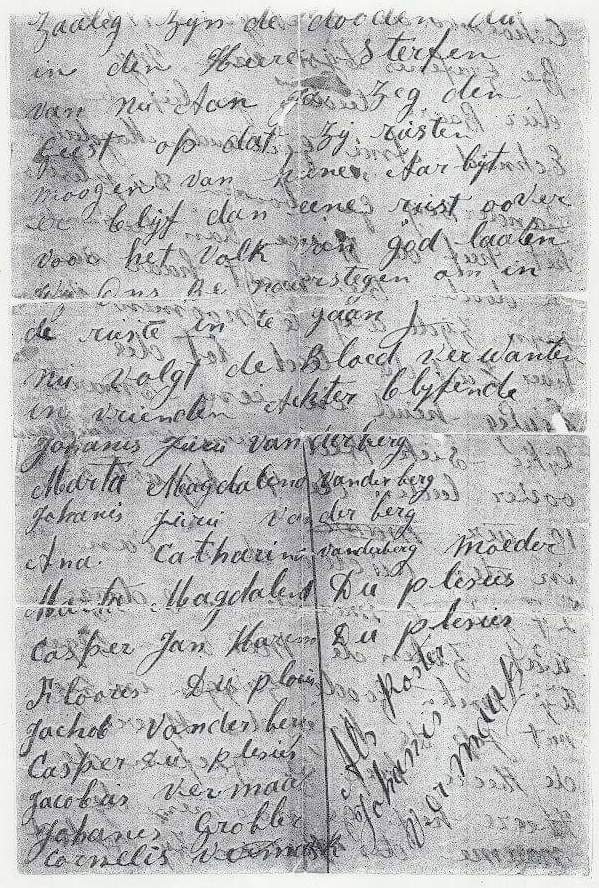 Zaaleg Zijn de dooden die
in den Heere Sterfen
van nu Aan Zeg den
Geest op dat Zij rusten
moogen van Aarbijt
er blijf dan eene rust oover
voor het Volk van god laaten
Wij Ons Be neverstegen om in
de ruste in te gaan
nu volgt de Bloed verwanten
in vrienden Achter blijfende
Johanis Jurii van der berg
Marta Magdalena vanderberg
Johanis Jurii van der berg
Ana Catharina vanderberg moeder
Magdalena Du plesius
Casper Jan Harm Du plesius
Floores Du ploui
Jachob vanderberg
Casper Du plesius
Jacobus vermaak
Johanes Grobler
Cornelis vermaak
Als Poster
Johanis
vermaak